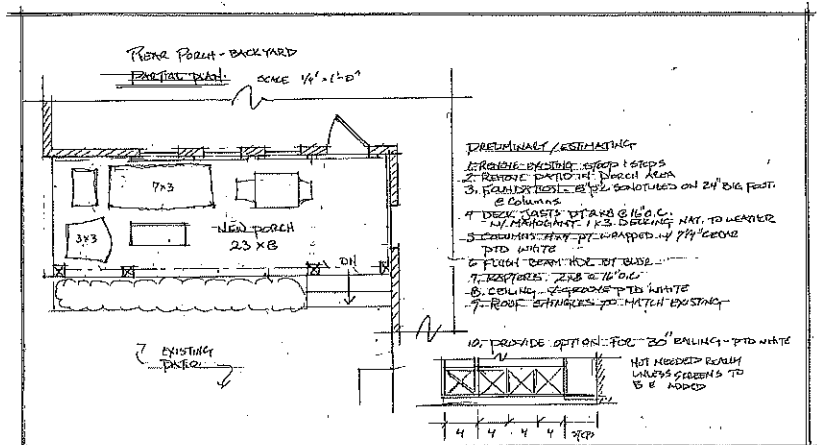 REAR PORCH - BACKYARD
PARTIAL PLAN. SCALE 1/4" = 1'-0"
7x3
3x3
NEW PORCH
23 x 8
DN
EXISTING
PATIO
PRELIMINARY / ESTIMATING
1. REMOVE EXISTING STOOP & STEPS
2. REMOVE PATIO IN PORCH AREA
3. FOUNDATION - 8" DIA SONOTUBED ON 24" BIG FOOT.
@ COLUMNS
4 DECK JOISTS PT 2x8 @ 16" O.C.
W/ MAHOGANY 1x3 DECKING NAT. TO WEATHER
5 COLUMNS 4x4 PT WRAPPED W/ CEDAR
PTD WHITE
6 FLUSH BEAM HDR BY BLDR
7. RAFTERS 2x8 @ 16" O.C.
8. CEILING V-GROOVE PTD WHITE
9. ROOF SHINGLES TO MATCH EXISTING
10. PROVIDE OPTION FOR 30" RAILING - PTD WHITE
NOT NEEDED REALLY
UNLESS SCREENS TO
BE ADDED
4 4 4 4 STEPS